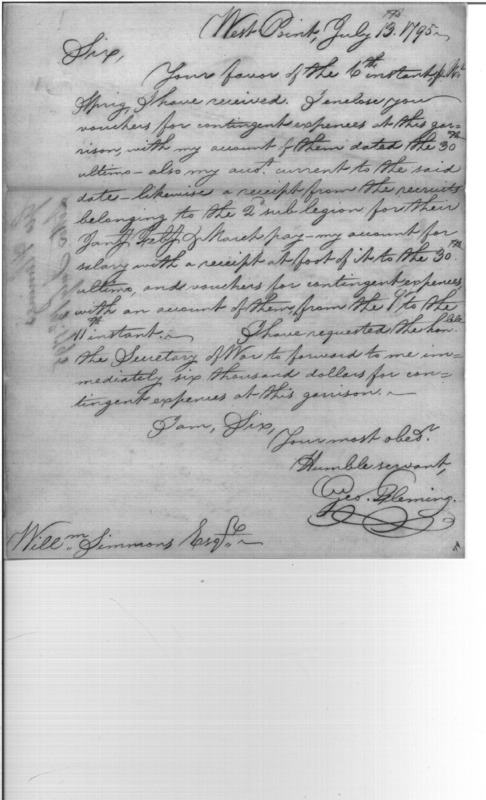 West Point, July 13th 1795~
Sir,
Your favor of the 6th instant, p. Mr
Sprig, I have received. I enclose you
vouchers for contingent expences at this gar=
rison, with my account of them dated the 30th
ultimo — also my acct. current to the said
date — likewise a receipt from the recruits
belonging to the 2d sub legion for their
Jany Feby & March pay — my account for
salary with a receipt at foot of it to the 30th
ultimo, and vouchers for contingent expences
with an account of them, from the 1st to the
11th instant. ~ I have requested the honble
the Secretary of War to forward to me im=
mediately six thousand dollars for con=
tingent expences at this garrison. ~
I am, Sir,
Your most obedt.
Humble servant,
Geo. Fleming.
Willm Simmons Esqr.~